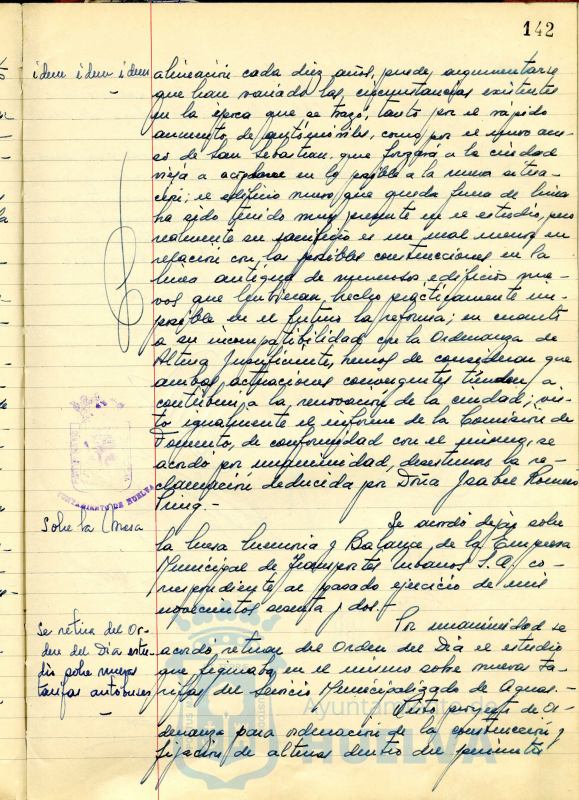 142
idem idem idem
alineación cada diez años, puede argumentarse
que han variado las circunstancias existentes
en la época que se trazó, tanto por el rápido
aumento de automóviles, como por el nuevo
de San Sebastian que forzará a la ciudad
vieja a en lo posible a la nueva
el edificio nuevo, que queda fuera de línea
ha sido tenido muy presente en el estudio, pero
realmente su sacrificio es un mal menor en
relación con las posibles construcciones en la
línea antigua de numerosos edificios nue-
vos que hubieran hecho prácticamente im-
posible en el futuro la reforma; en cuanto
a su incompatibilidad con la Ordenanza de
Altura Insuficiente, hemos de considerar que
ambas actuaciones convergentes tienden a
contribuir a la renovación de la ciudad; vis-
to igualmente el informe de la Comisión de
Fomento, de conformidad con el mismo, se
acordó por unanimidad, desestimar la re-
clamación deducida por Doña Isabel Romero
AYUNTAMIENTO DE HUELVA
Sobre la Mesa
Se acordó dejar sobre
la mesa Memoria y Balance de la Empresa
Municipal de Transportes Urbanos S.A. co-
rrespondiente al pasado ejercicio de mil
novecientos sesenta y dos.-
Se retira del Or-
den del Día estu-
dio sobre nuevas
tarifas autobuses
Por unanimidad se
acordó retirar del Orden del Día el estudio
que figuraba en el mismo sobre nuevas ta-
rifas del Servicio Municipalizado de Aguas.-
Visto proyecto de Or-
denanza para ordenación de la construcción y
fijación de alturas dentro del perímetro
Ayuntamiento de
HUELVA